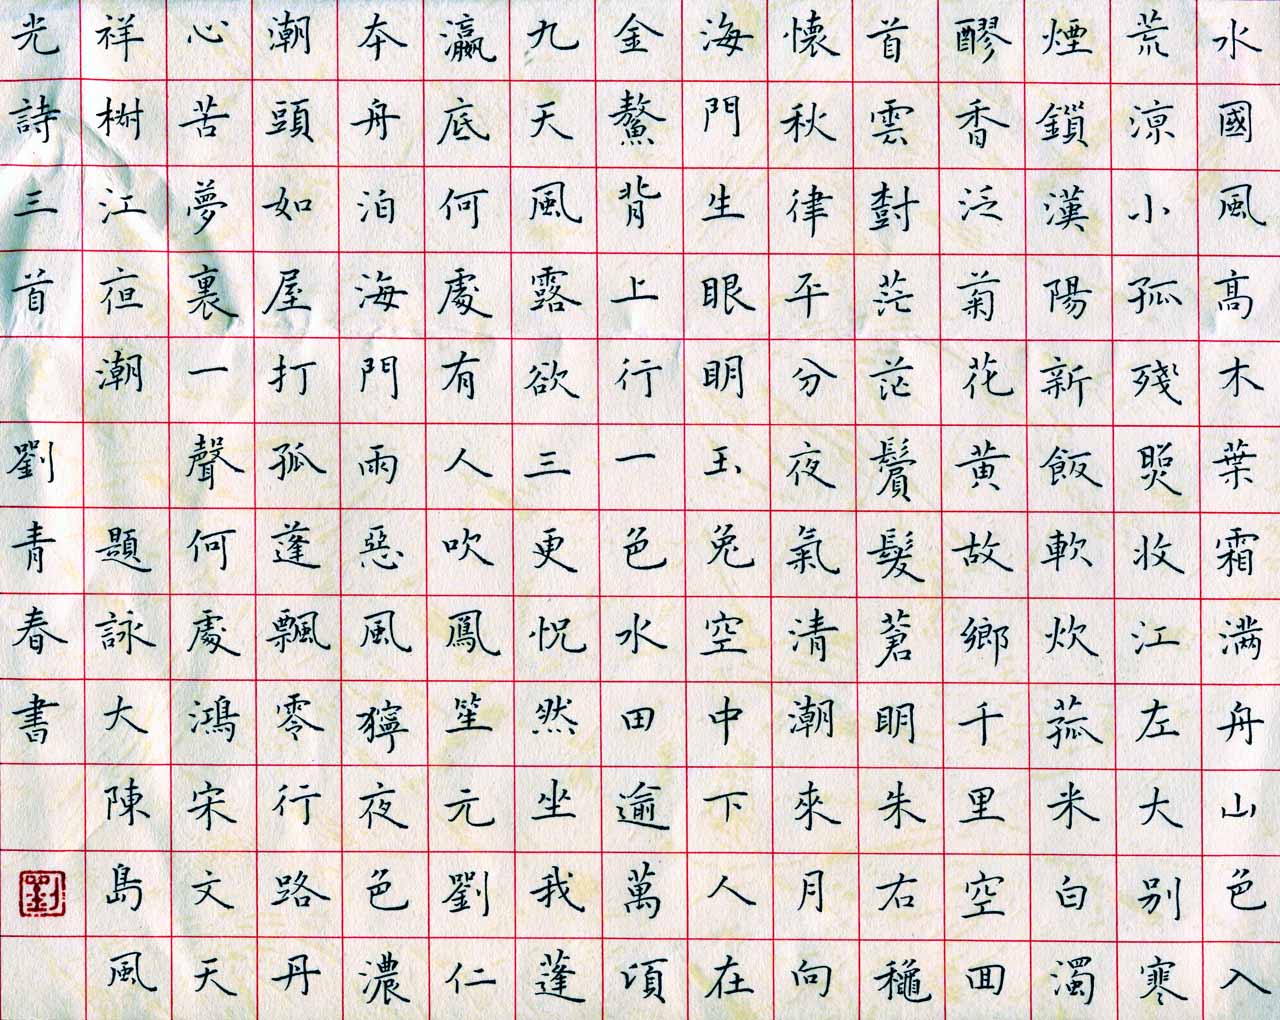 水國風高木葉霜滿舟山色入
荒涼小孤殘照收江左大別寒
煙鎖漢陽新飯軟炊菰米白濁
醪香泛菊花黃故鄉千里空囬
首雲對茫茫鬢髮蒼明朱右穐
懷秋律平分夜氣清潮來月向
海門生眼明玉兔空中下人在
金鰲背上行一色水田逾萬頃
九天風露欲三更怳然坐我蓬
瀛底何處有人吹鳳笙元劉仁
本舟泊海門雨惡風獰夜色濃
潮頭如屋打孤蓬飄零行路丹
心苦夢裏一聲何處鴻宋文天
祥樹江亱潮 題詠大陳島風
光詩三首 劉青春書 劉